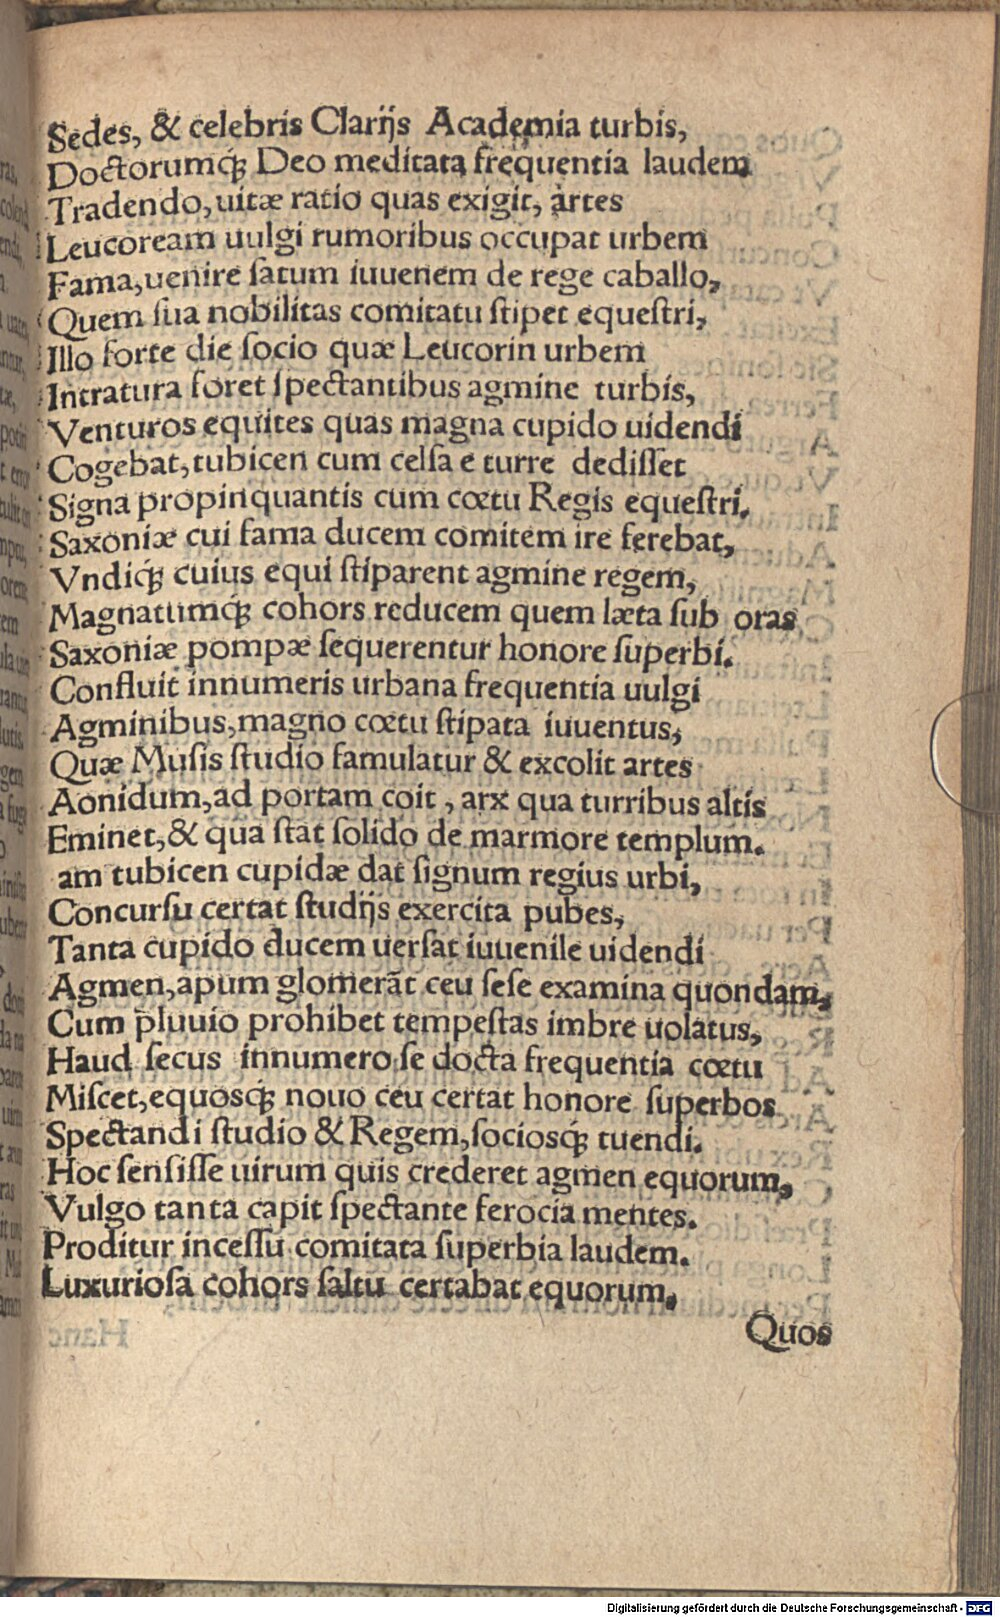 Sedes, & celebris Clarijs Academia turbis,
Doctorumq́ꝫ Deo meditata frequentia laudem
Tradendo, uitæ ratio quas exigit, artes
Leucoream uulgi rumoribus occupat urbem
Fama, uenire ſatum iuuenem de rege caballo,
Quem ſua nobilitas comitatu ſtipet equeſtri,
Illo forte die ſocio quæ Leucorin urbem
Intratura foret ſpectantibus agmine turbis,
Venturos equites quas magna cupido uidendi
Cogebat, tubicen cum celſa e turre dediſſet
Signa propinquantis cum cœtu Regis equeſtri,
Saxoniæ cui fama ducem comitem ire ferebat,
Vndiq́ꝫ cuius equi ſtiparent agmine regem,
Magnatumq́ꝫ cohors reducem quem læta ſub oras
Saxoniæ pompæ ſequerentur honore ſuperbi.
Confluit innumeris urbana frequentia uulgi
Agminibus, magno cœtu ſtipata iuuentus,
Quæ Muſis ſtudio famulatur & excolit artes
Aonidum, ad portam coit, arx qua turribus altis
Eminet, & qua ſtat ſolido de marmore templum.
am tubicen cupidæ dat ſignum regius urbi,
Concurſu certat ſtudijs exercita pubes,
Tanta cupido ducem uerſat iuuenile uidendi
Agmen, apum glomerãt ceu ſeſe examina quondam,
Cum pluuio prohibet tempeſtas imbre uolatus,
Haud ſecus innumero ſe docta frequentia cœtu
Miſcet, equosq́ꝫ nouo ceu certat honore ſuperbos
Spectandi ſtudio & Regem, ſociosq́ꝫ tuendi.
Hoc ſenſiſſe uirum quis crederet agmen equorum,
Vulgo tanta capit ſpectante ferocia mentes.
Proditur inceſſu comitata ſuperbia laudem.
Luxurioſa cohors ſaltu certabat equorum,
Quos
Digitalisierung gefördert durch die Deutsche Forschungsgemeinschaft - DFG